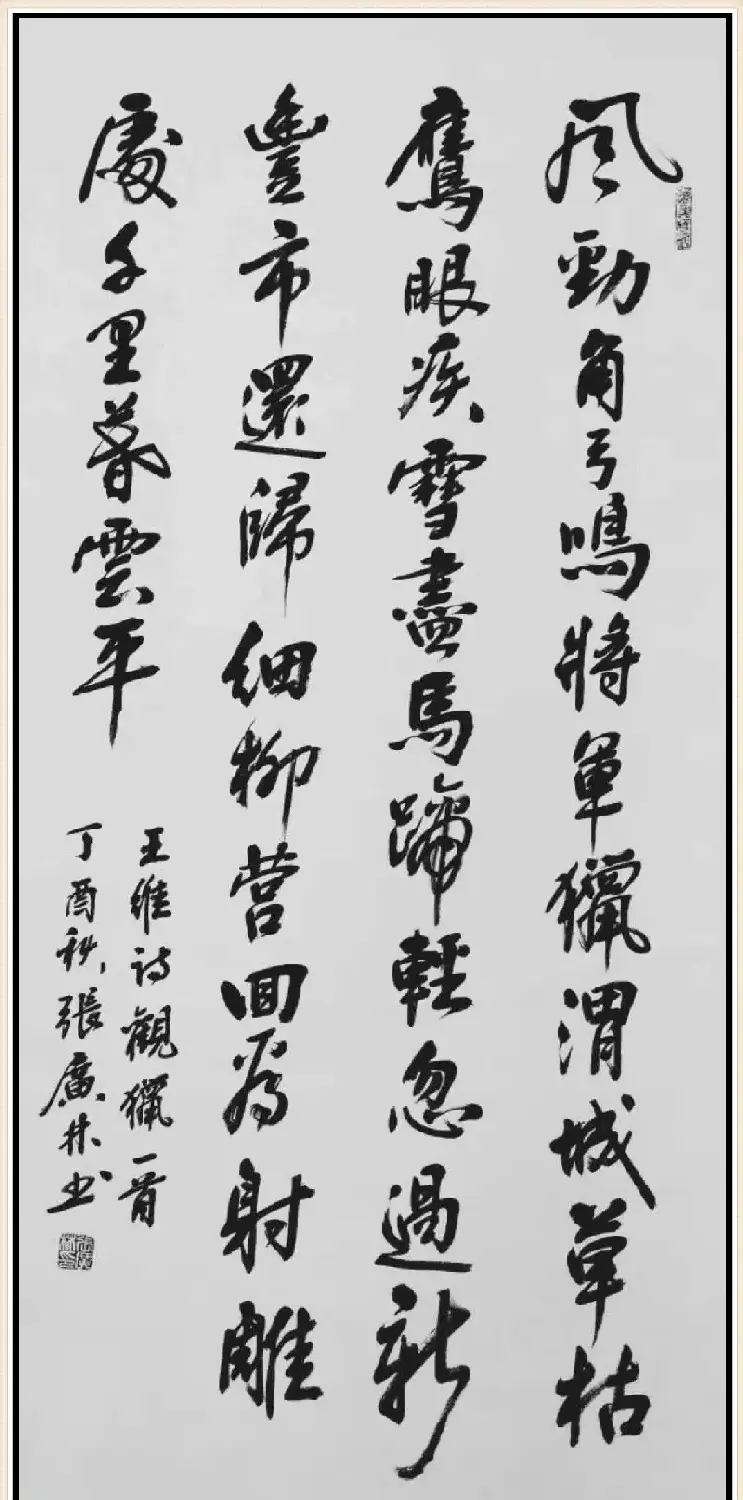 風勁角弓鳴將軍獵渭城草枯
鷹眼疾雪盡馬蹄輕忽過新
豐市還歸細柳營回為射雕
處千里暮雲平
王維詩觀獵一首
丁酉秋張廣林书